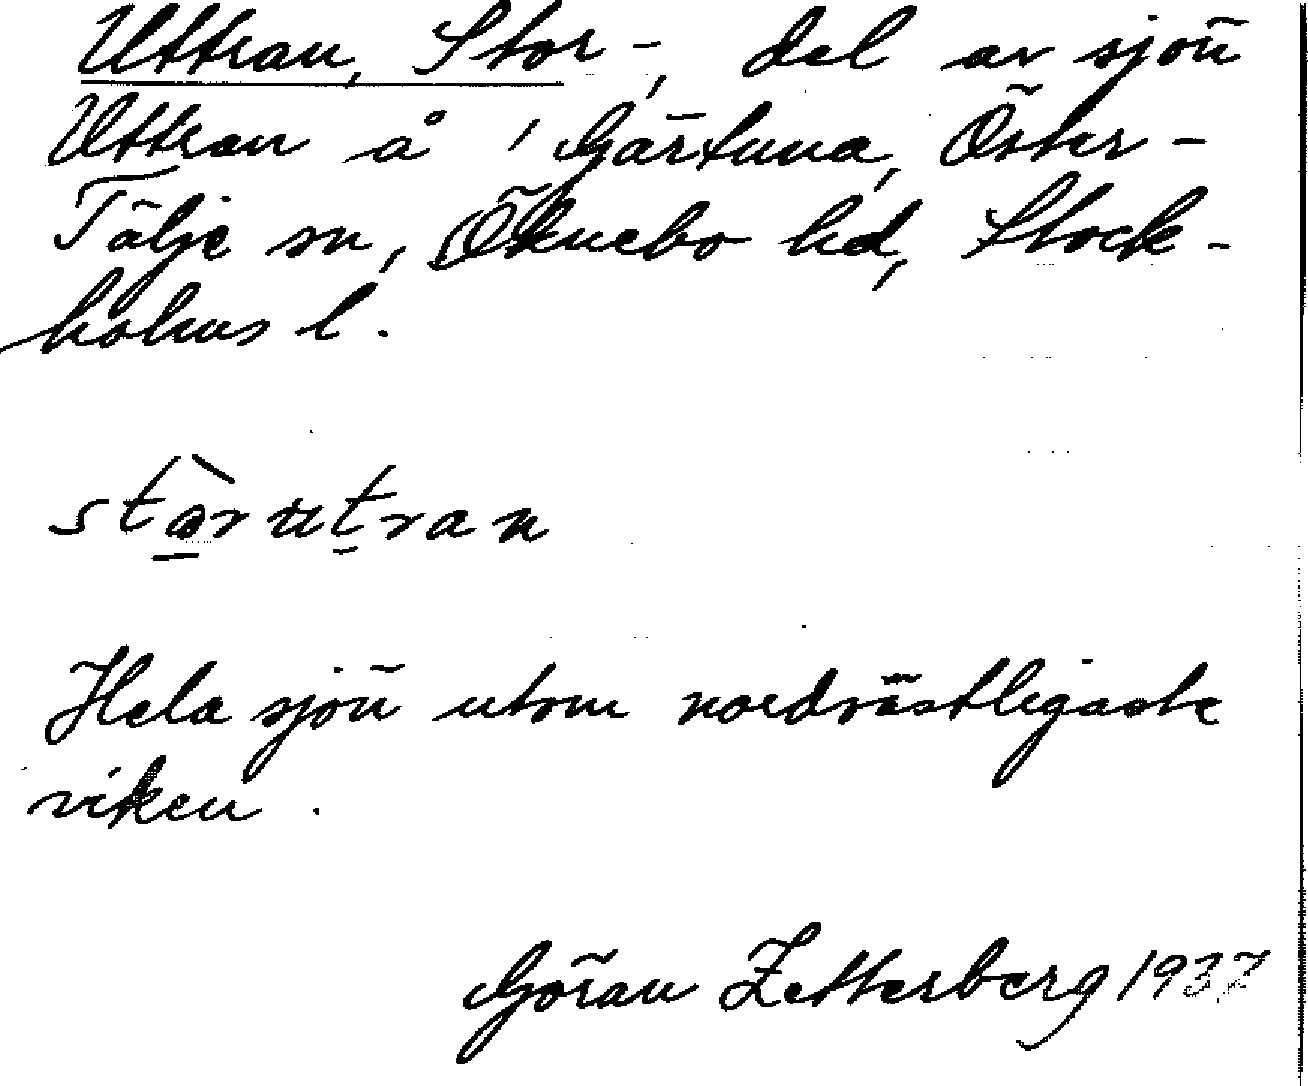 Uttran, Stor-, del av sjön
Uttran å 1 Gärtuna, Öster-
Tälje sn, Öknebo hd, Stock-
holms l.
stòrutran
Hela sjön utom nordvästligaste
viken.
Göran Zetterberg 1937